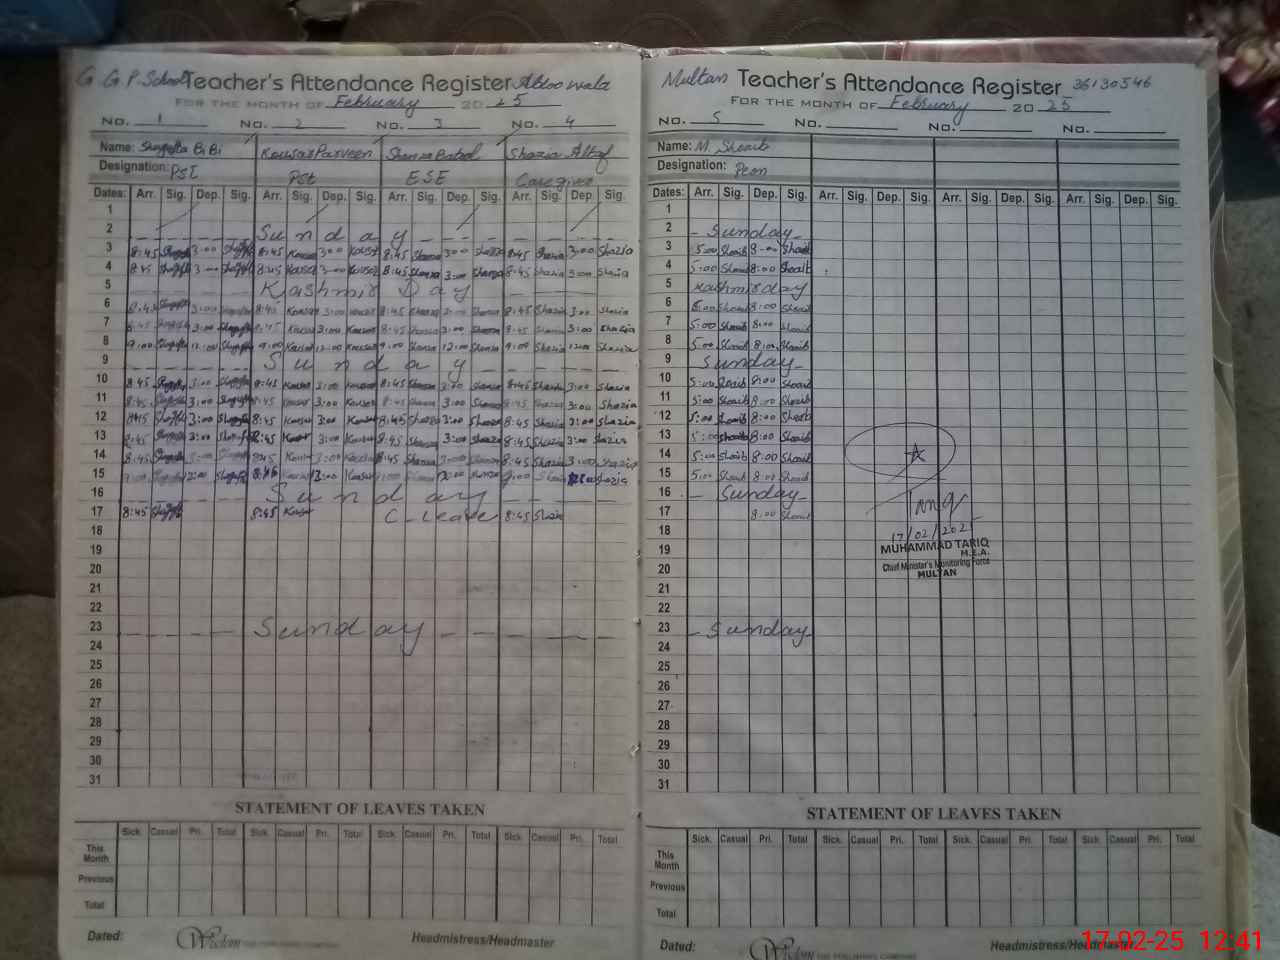 G. G. P. School Teacher's Attendance Register Abloo wala
FOR THE MONTH OF February 20 25
No. 1 No. 2 No. 3 No. 4
Name: Shagufta BiBi Kousar Parveen Shanza Batool Shazia Altaf
Designation: PST PST ESE Caregiver
Dates: Arr. Sig. Dep. Sig. Arr. Sig. Dep. Sig. Arr. Sig. Dep. Sig. Arr. Sig. Dep. Sig.
1
2 Sunday
3 8:45 Shagufta 3:00 Shagufta 8:45 Kousar 3:00 Kousar 8:45 Shanza 3:00 Shanza 8:45 Shazia 3:00 Shazia
4 8:45 Shagufta 3:00 Shagufta 8:45 Kousar 3:00 Kousar 8:45 Shanza 3:00 Shanza 8:45 Shazia 3:00 Shazia
5 Kashmir Day
6 8:45 Shagufta 3:00 Shagufta 8:45 Kousar 3:00 Kousar 8:45 Shanza 3:00 Shanza 8:45 Shazia 3:00 Shazia
7 8:45 Shagufta 3:00 Shagufta 8:45 Kousar 3:00 Kousar 8:45 Shanza 3:00 Shanza 8:45 Shazia 3:00 Shazia
8 9:00 Shagufta 12:00 Shagufta 9:00 Kousar 12:00 Kousar 9:00 Shanza 12:00 Shanza 9:00 Shazia 12:00 Shazia
9 Sunday
10 8:45 Shagufta 3:00 Shagufta 8:45 Kousar 3:00 Kousar 8:45 Shanza 3:00 Shanza 8:45 Shazia 3:00 Shazia
11 8:45 Shagufta 3:00 Shagufta 8:45 Kousar 3:00 Kousar 8:45 Shanza 3:00 Shanza 8:45 Shazia 3:00 Shazia
12 8:45 Shagufta 3:00 Shagufta 8:45 Kousar 3:00 Kousar 8:45 Shanza 3:00 Shanza 8:45 Shazia 3:00 Shazia
13 8:45 Shagufta 3:00 Shagufta 8:45 Kousar 3:00 Kousar 8:45 Shanza 3:00 Shanza 8:45 Shazia 3:00 Shazia
14 8:45 Shagufta 3:00 Shagufta 8:45 Kousar 3:00 Kousar 8:45 Shanza 3:00 Shanza 8:45 Shazia 3:00 Shazia
15 9:00 Shagufta 12:00 Shagufta Kousar Kousar 9:00 Shanza 12:00 Shanza 9:00 Shazia Shazia
16 Sunday
17 8:45 Shagufta 8:45 Kousar C-Leave 8:45 Shazia
18
19
20
21
22
23 Sunday
24
25
26
27
28
29
30
31
STATEMENT OF LEAVES TAKEN
Sick. Casual Pri. Total Sick. Casual Pri. Total Sick. Casual Pri. Total Sick. Casual Pri. Total
This Month
Previous
Total
Dated: Wisdom THE PUBLISHING COMPANY Headmistress/Headmaster
Multan Teacher's Attendance Register 36130546
FOR THE MONTH OF February 20 25
No. 5 No. No. No.
Name: M. Shoaib
Designation: Peon
Dates: Arr. Sig. Dep. Sig. Arr. Sig. Dep. Sig. Arr. Sig. Dep. Sig. Arr. Sig. Dep. Sig.
1
2 Sunday
3 5:00 Shoaib 8:00 Shoaib
4 5:00 Shoaib 8:00 Shoaib
5 Kashmir day
6 5:00 Shoaib 8:00 Shoaib
7 5:00 Shoaib 8:00 Shoaib
8 5:00 Shoaib 8:00 Shoaib
9 Sunday
10 5:00 Shoaib 8:00 Shoaib
11 5:00 Shoaib 8:00 Shoaib
12 5:00 Shoaib 8:00 Shoaib
13 5:00 Shoaib 8:00 Shoaib
14 5:00 Shoaib 8:00 Shoaib
15 5:00 Shoaib 8:00 Shoaib
16 Sunday
17 8:00 Shoaib
18
19
20
21
22
23 Sunday
24
25
26
27
28
29
30
31
Tariq
17/02/2025
MUHAMMAD TARIQ
M.E.A.
Chief Minister's Monitoring Force
MULTAN
STATEMENT OF LEAVES TAKEN
Sick. Casual Pri. Total Sick. Casual Pri. Total Sick. Casual Pri. Total Sick. Casual Pri. Total
This Month
Previous
Total
Dated: Wisdom THE PUBLISHING COMPANY Headmistress/Headmaster
17-02-25 12:41